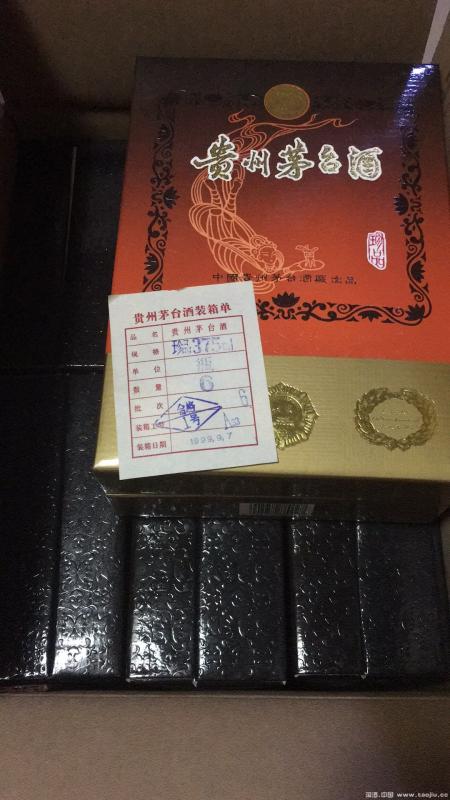 贵州茅台酒
珍品
中國贵州茅台酒廠出品
贵州茅台酒装箱单
品名 贵州茅台酒
规格 珍品375ml
单位
数量 6
批次 6
装箱工
装箱日期 1999.9.7
淘酒.中国 www.taojiu.cc